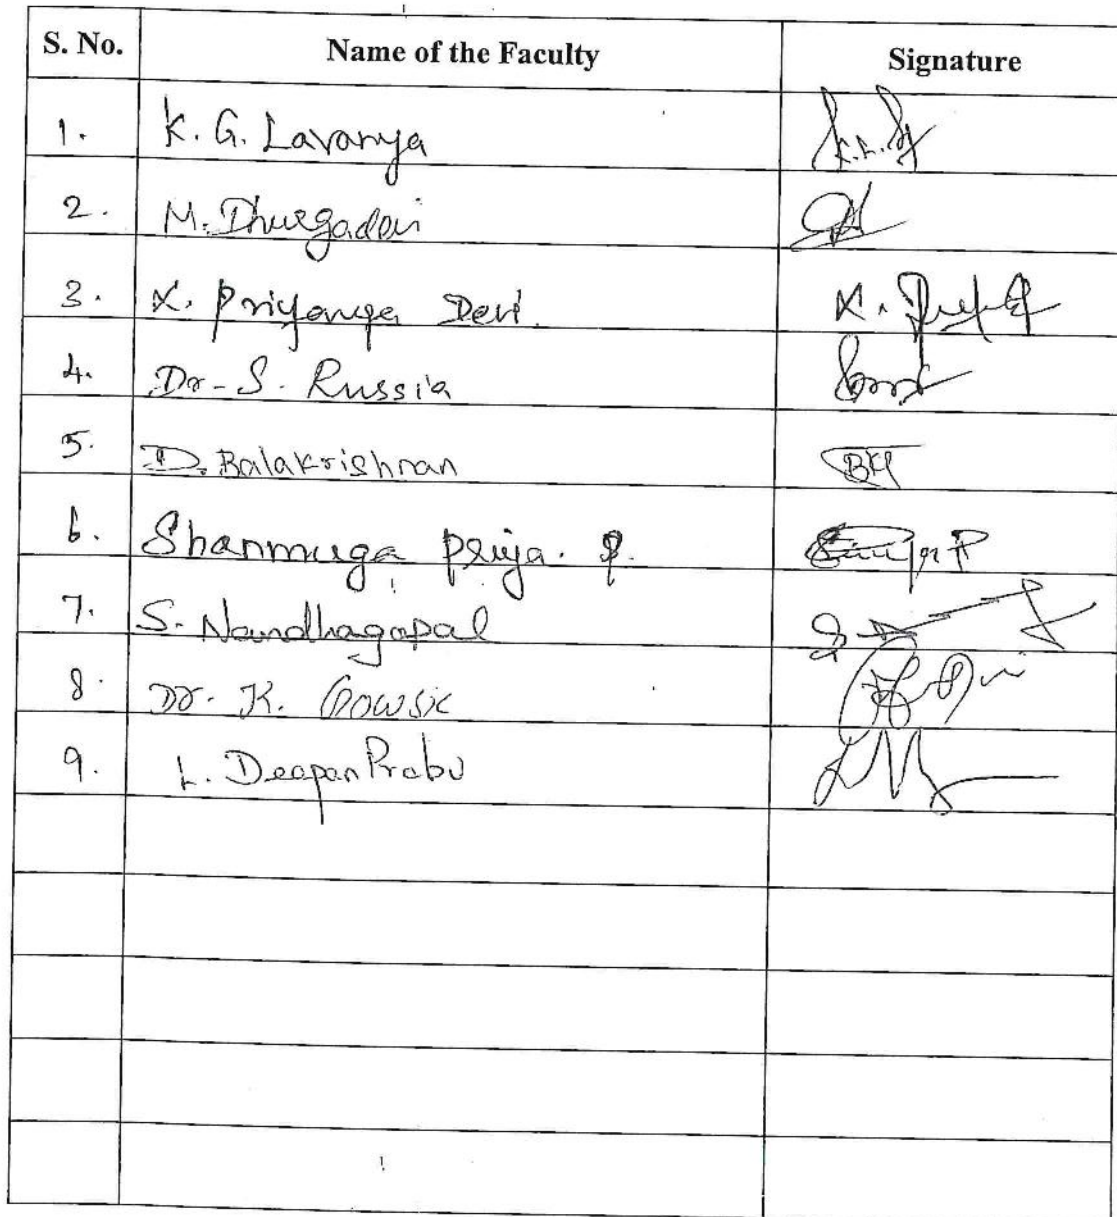 S. No. Name of the Faculty Signature
1. K. G. Lavanya
2. M. Dhurgadevi
3. K. Priyanga Devi K.
4. Dr. S. Russia
5. D. Balakrishnan
6. Shanmuga Priya. P.
7. S. Nandhagopal
8. Dr. K. Gowsic
9. L. Deepan Prabu